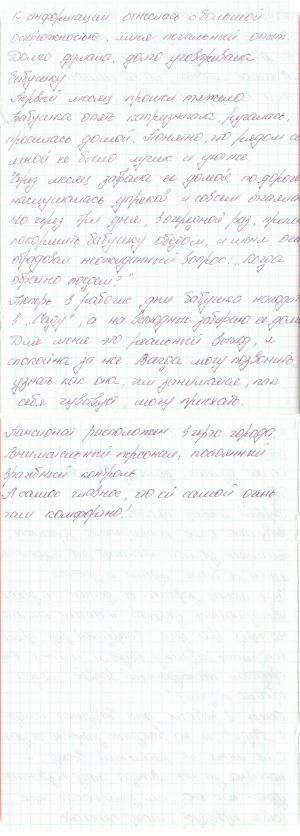 К информации отнеслась с большой
осторожностью, имея печальный опыт.
Долго думала, долго уговаривала
бабушку
Первый месяц прошел тяжело
Бабушка опять капризничала, ругалась,
просилась домой. Понятно, что рядом со
мной ей было лучше и уютнее
Через месяц забрала ее домой, по дороге
наслушалась упреков и совсем
Но через три дня, в очередной раз,
покормить бабушку обедом, и меня
обрадовал неожиданный вопрос: "Когда
обратно поедем?"
Теперь в рабочие дни бабушка находит
в "Саду", а на выходные забираю ее дом
Для меня это реальный выход, я
спокойна за нее. Всегда могу позвонить
узнать как она, чем занимается, как
себя чувствует, могу приехать.
Пансионат расположен в черте города,
Внимательный персонал, постоянный
врачебный контроль
А самое главное, что ей самой очень
там комфортно!